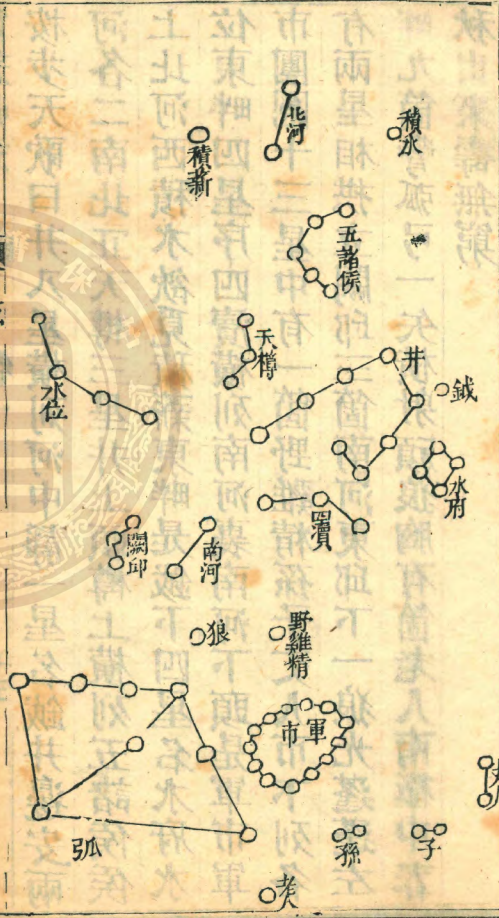 北河
積水
積薪
五諸侯
天樽
井
鉞
水位
水府
四瀆
闕邱
南河
狼
野雞精
軍市
弧
孫
子
老人